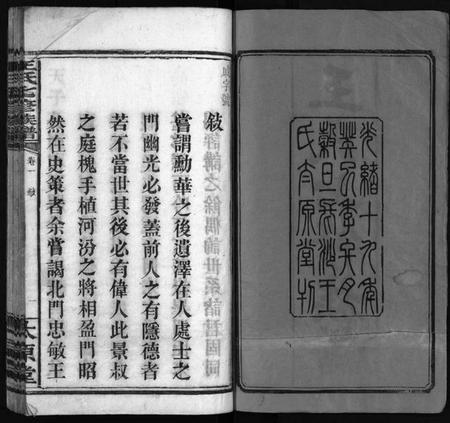 光緒十九年
癸巳季冬月
穀旦長沙王
氏太原堂刊
敍
嘗謂勳華之後遺澤在人處士之
門幽光必發蓋前人之有隱德者
若不當世其後必有偉人此景叔
之庭槐手植河汾之將相盈門昭
然在史策者余嘗謁北門忠敏王
卷一
敍
太原堂